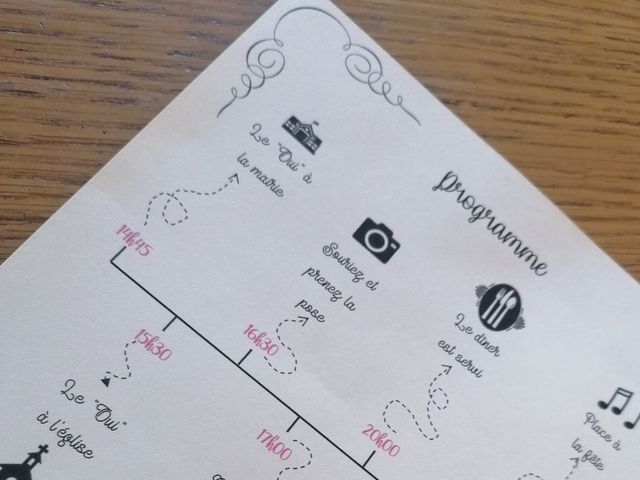 Programme
14h45
Le "Oui" à
la mairie
15h30
Le "Oui"
à l'église
16h30
Souriez et
prenez la
pose
17h00
20h00
Le dîner
est servi
Place à
la fête